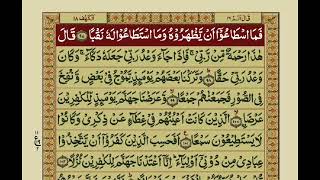 قَالَ اَلَمْ ١٦ اَلْكَهْف ١٨
فَمَا اسْطَاعُوْۤا اَنْ یَّظْهَرُوْهُ وَمَا اسْتَطَاعُوْا لَهٗ نَقْبًا ﴿۹۷﴾ قَالَ
هٰذَا رَحْمَةٌ مِّنْ رَّبِّیْ ۚ فَاِذَا جَآءَ وَعْدُ رَبِّیْ جَعَلَهٗ دَكَّآءَ ۚ وَكَانَ
وَعْدُ رَبِّیْ حَقًّا ﴿۹۸﴾ وَتَرَكْنَا بَعْضَهُمْ یَوْمَئِذٍ یَّمُوْجُ فِیْ بَعْضٍ وَّنُفِخَ
فِی الصُّوْرِ فَجَمَعْنٰهُمْ جَمْعًا ﴿۹۹﴾ وَّعَرَضْنَا جَهَنَّمَ یَوْمَئِذٍ لِّلْكٰفِرِیْنَ
عَرْضَا ﴿۱۰۰﴾ الَّذِیْنَ كَانَتْ اَعْیُنُهُمْ فِیْ غِطَآءٍ عَنْ ذِكْرِیْ وَكَانُوْا
لَا یَسْتَطِیْعُوْنَ سَمْعًا ﴿۱۰۱﴾ اَفَحَسِبَ الَّذِیْنَ كَفَرُوْۤا اَنْ یَّتَّخِذُوْا
عِبَادِیْ مِنْ دُوْنِیْۤ اَوْلِیَآءَ ؕ اِنَّاۤ اَعْتَدْنَا جَهَنَّمَ لِلْكٰفِرِیْنَ نُزُلًا